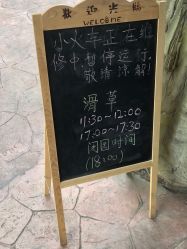 歡迎光臨
WELCOME
小火车正在维
修中暂停运行,
敬请谅解!
滑草
11:30~12:00
17:00~17:30
闭园时间
(18:00)